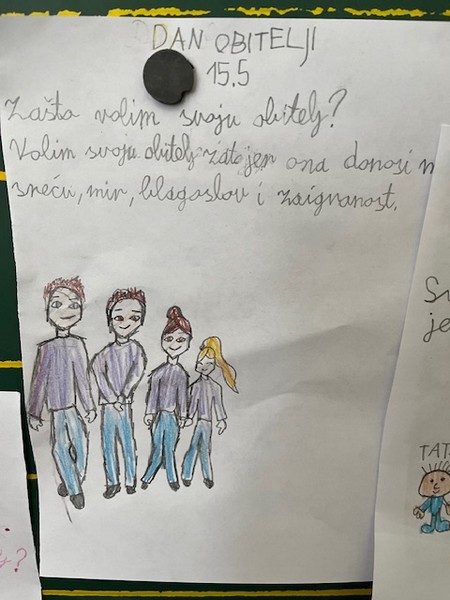 DAN OBITELJI
15.5
Zašto volim svoju obitelj?
Volim svoju obitelj zato jer ona donosi
sreću, mir, blagoslov i zaigranost.
je
TAT
?